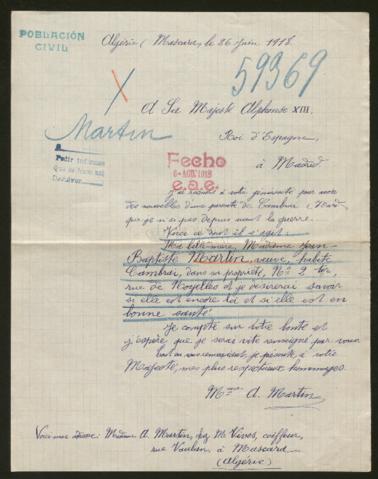 POBLACIÓN
CIVIL
Algérie (Mascara, le 26 Juin 1918.
59369
A Sa Majesté Alphonse XIII.
Roi d'Espagne,
à Madrid
Martin
Pedir informes
Fecho
6-AGO.1918
e.a.e.
J'ai recours à votre générosité pour avoir
des nouvelles d'une parente de Cambrai (Nord)
que je n'ai pas depuis avant la guerre.
Voici ce dont il s'agit:
Ma belle mère, Madame Jean-
Baptiste Martin, veuve, habite
Cambrai, dans sa propriété, N° 2 bis,
rue de Noyelles et je désirerai savoir
si elle est encore là et si elle est en
bonne santé.
Je compte sur votre bonté et
j'espère que je serai vite renseigné par vous
Tout en vous remerciant, je présente à votre
Majesté, mes plus respectueux hommages.
Mme A. Martin
Voici mon adresse: Madame A. Martin, chez Mr Vives, coiffeur,
rue Vauban, à Mascara
(Algérie)